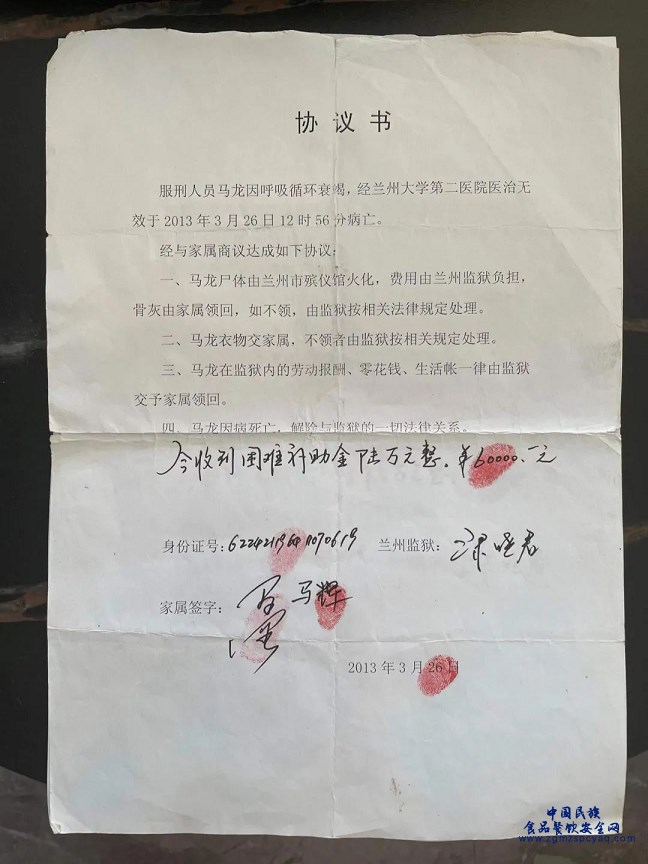 协议书
服刑人员马龙因呼吸循环衰竭，经兰州大学第二医院医治无
效于2013年3月26日12时56分病亡。
经与家属商议达成如下协议：
一、马龙尸体由兰州市殡仪馆火化，费用由兰州监狱负担，
骨灰由家属领回，如不领，由监狱按相关法律规定处理。
二、马龙衣物交家属，不领者由监狱按相关规定处理。
三、马龙在监狱内的劳动报酬、零花钱、生活帐一律由监狱
交予家属领回。
四、马龙因病死亡，解除与监狱的一切法律关系。
今收到困难补助金陆万元整。¥60000.一元
身份证号： 兰州监狱：
家属签字： 马辉
2013年3月26日
中国民族
食品餐饮安全网
www.zgmzspcyaq.com